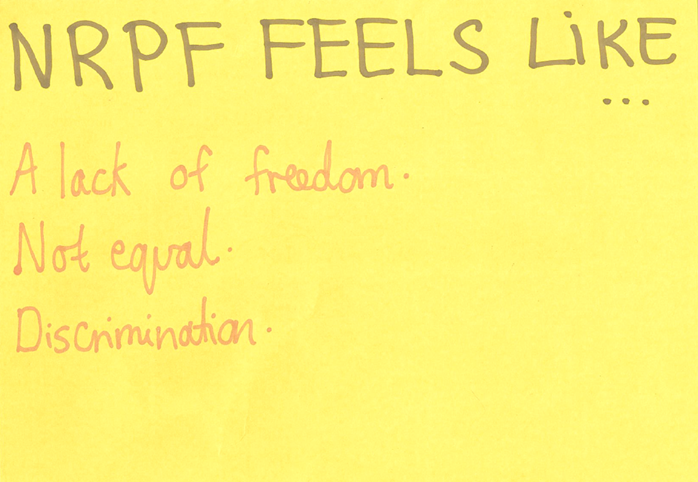 NRPF FEELS LiKE
...
A lack of freedom.
Not equal.
Discrimination.